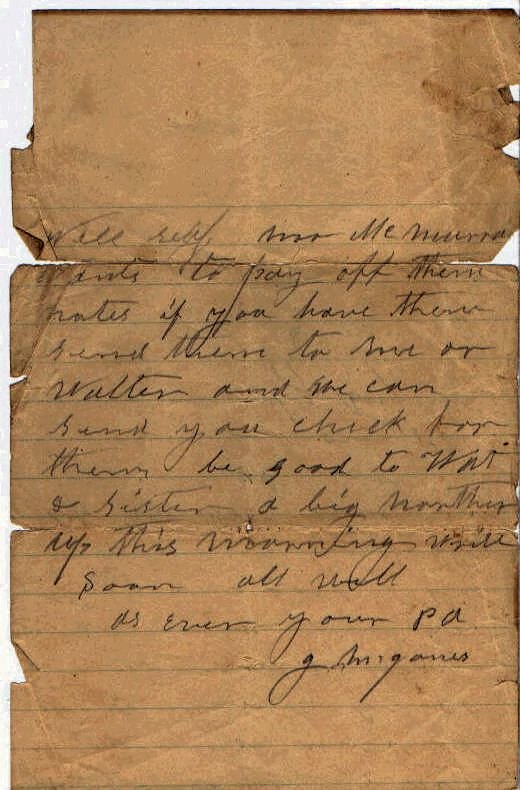 Well self, mr McMurra
wants to pay off them
notes if you have them
send them to me or
Walter and we can
send you check for
them be good to Wat
& sister a big norther
up this morning write
soon all well
as ever your pa
g m gones